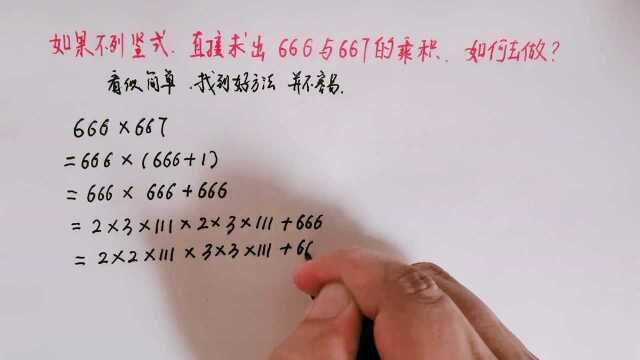 如果不列竖式.直接求出666与667的乘积.如何去做?
看似简单.找到好方法 并不容易.
666×667
=666×(666+1)
=666×666+666
=2×3×111×2×3×111+666
=2×2×111×3×3×111+66